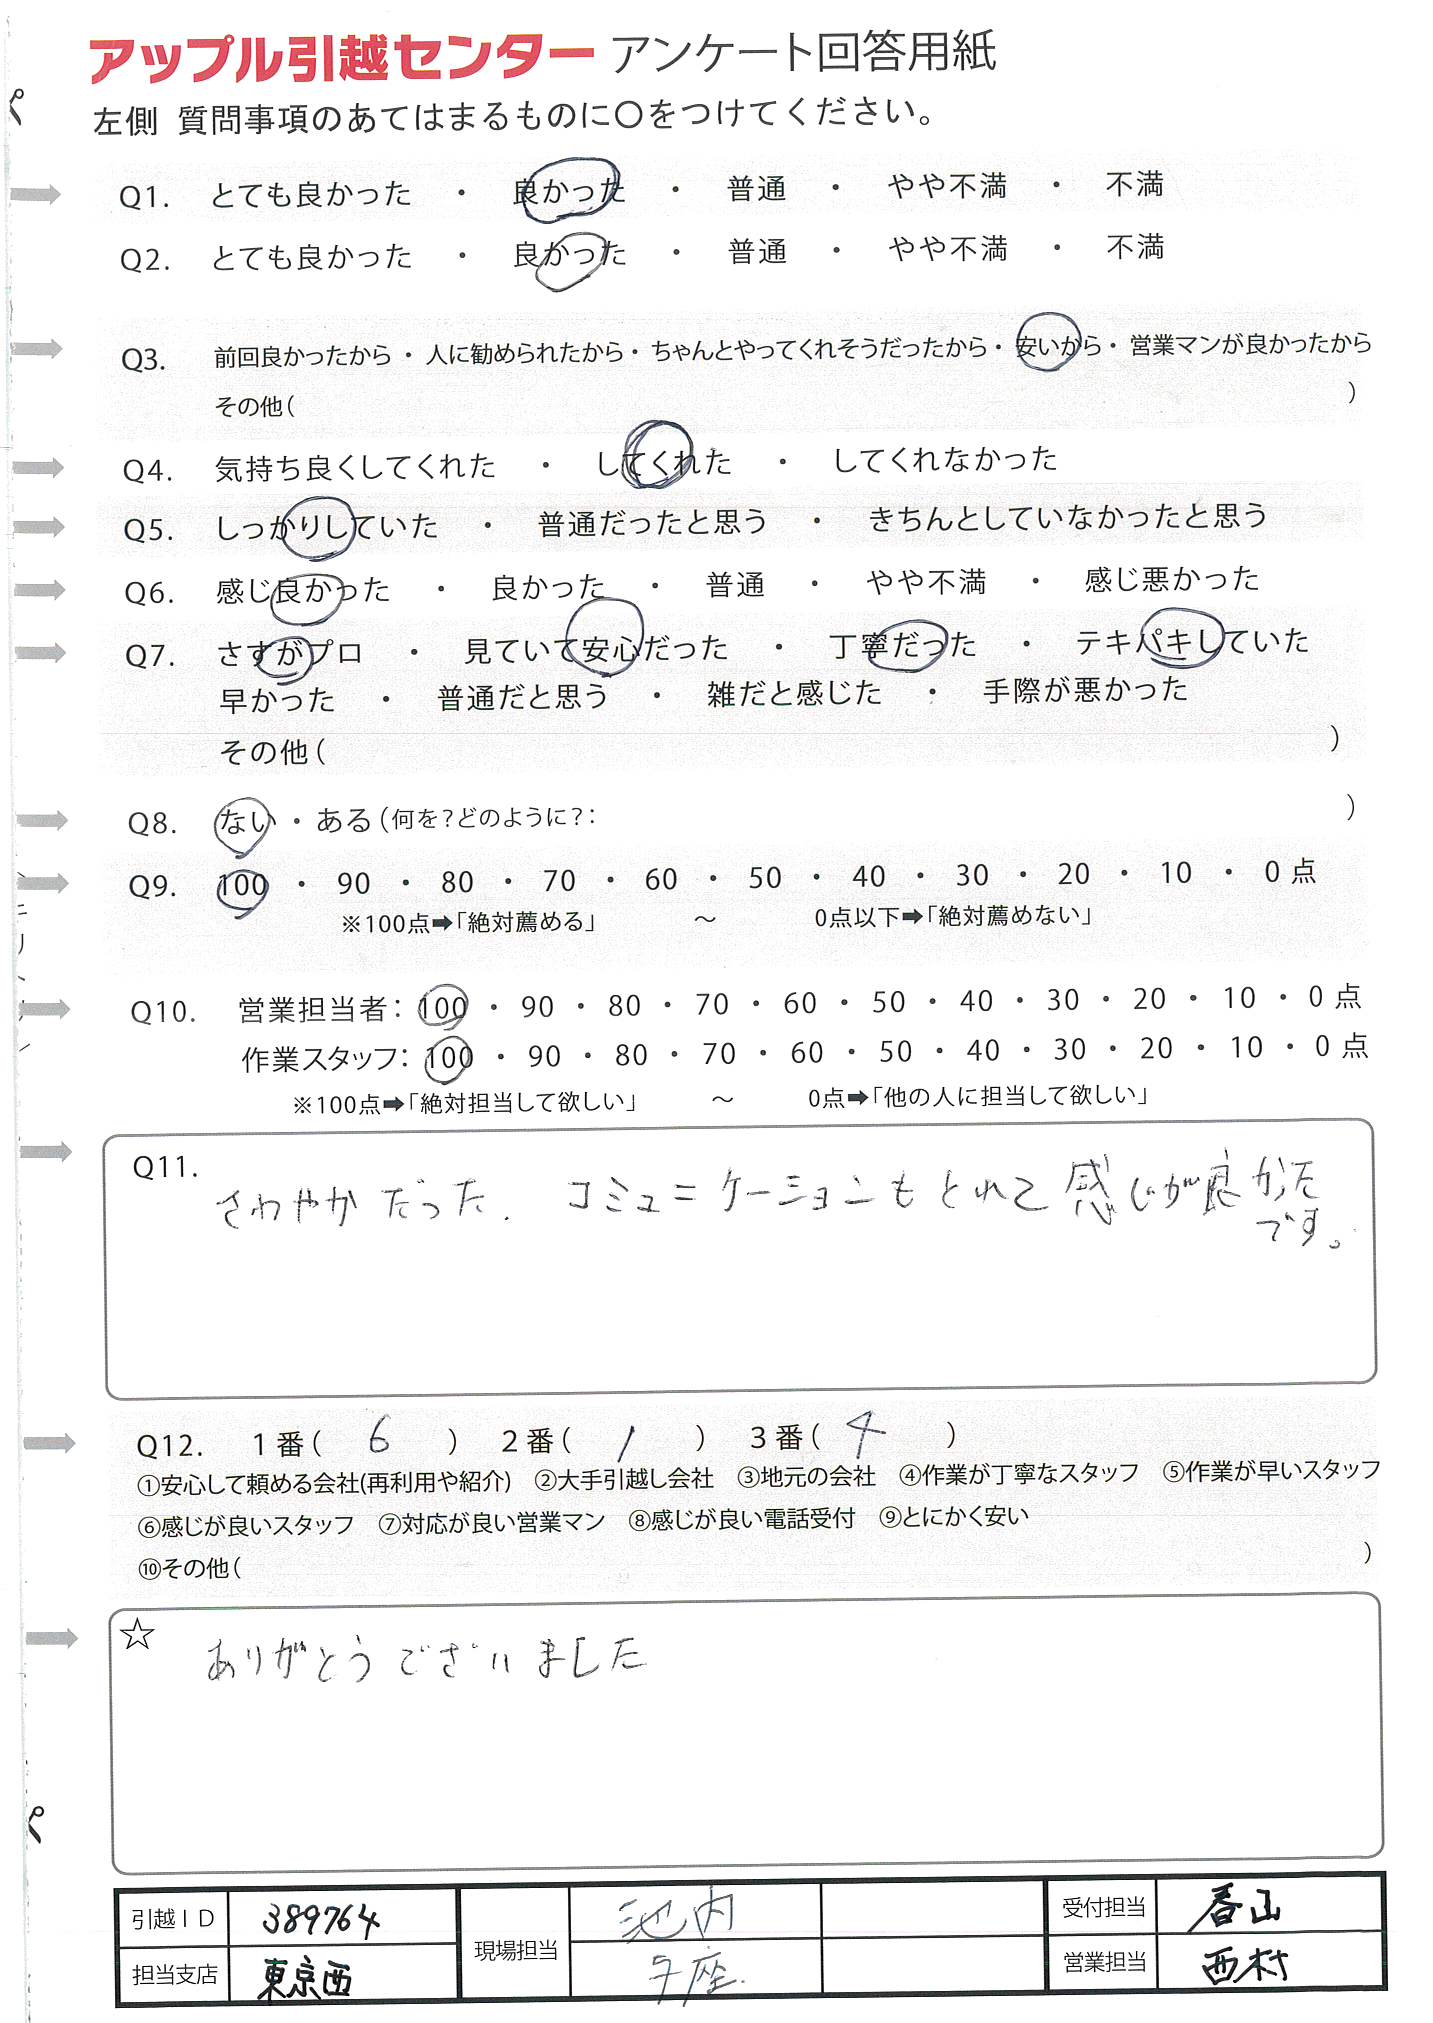 アップル引越センター アンケート回答用紙
左側 質問事項のあてはまるものに〇をつけてください。
Q1. とても良かった ・ 良かった ・ 普通 ・ やや不満 ・ 不満
Q2. とても良かった ・ 良かった ・ 普通 ・ やや不満 ・ 不満
Q3. 前回良かったから・人に勧められたから・ちゃんとやってくれそうだったから・安いから・営業マンが良かったから
その他( )
Q4. 気持ち良くしてくれた ・ してくれた ・ してくれなかった
Q5. しっかりしていた ・ 普通だったと思う ・ きちんとしていなかったと思う
Q6. 感じ良かった ・ 良かった ・ 普通 ・ やや不満 ・ 感じ悪かった
Q7. さすがプロ ・ 見ていて安心だった ・ 丁寧だった ・ テキパキしていた
早かった ・ 普通だと思う ・ 雑だと感じた ・ 手際が悪かった
その他( )
Q8. ない・ある(何を?どのように?: )
Q9. 100 ・ 90 ・ 80 ・ 70 ・ 60 ・ 50 ・ 40 ・ 30 ・ 20 ・ 10 ・ 0 点
※100点➡「絶対薦める」 ～ 0点以下➡「絶対薦めない」
Q10. 営業担当者: 100 ・ 90 ・ 80 ・ 70 ・ 60 ・ 50 ・ 40 ・ 30 ・ 20 ・ 10 ・ 0 点
作業スタッフ: 100 ・ 90 ・ 80 ・ 70 ・ 60 ・ 50 ・ 40 ・ 30 ・ 20 ・ 10 ・ 0 点
※100点➡「絶対担当して欲しい」 ～ 0点➡「他の人に担当して欲しい」
Q11.
さわやかだった. コミュニケーションもとれて感じが良かった
です。
Q12. 1番( 6 ) 2番( 1 ) 3番( 4 )
①安心して頼める会社(再利用や紹介) ②大手引越し会社 ③地元の会社 ④作業が丁寧なスタッフ ⑤作業が早いスタッフ
⑥感じが良いスタッフ ⑦対応が良い営業マン ⑧感じが良い電話受付 ⑨とにかく安い
⑩その他( )
☆ ありがとうございました
引越ID 389764 現場担当 池内 受付担当 春山
担当支店 東京西 营業担当 西村